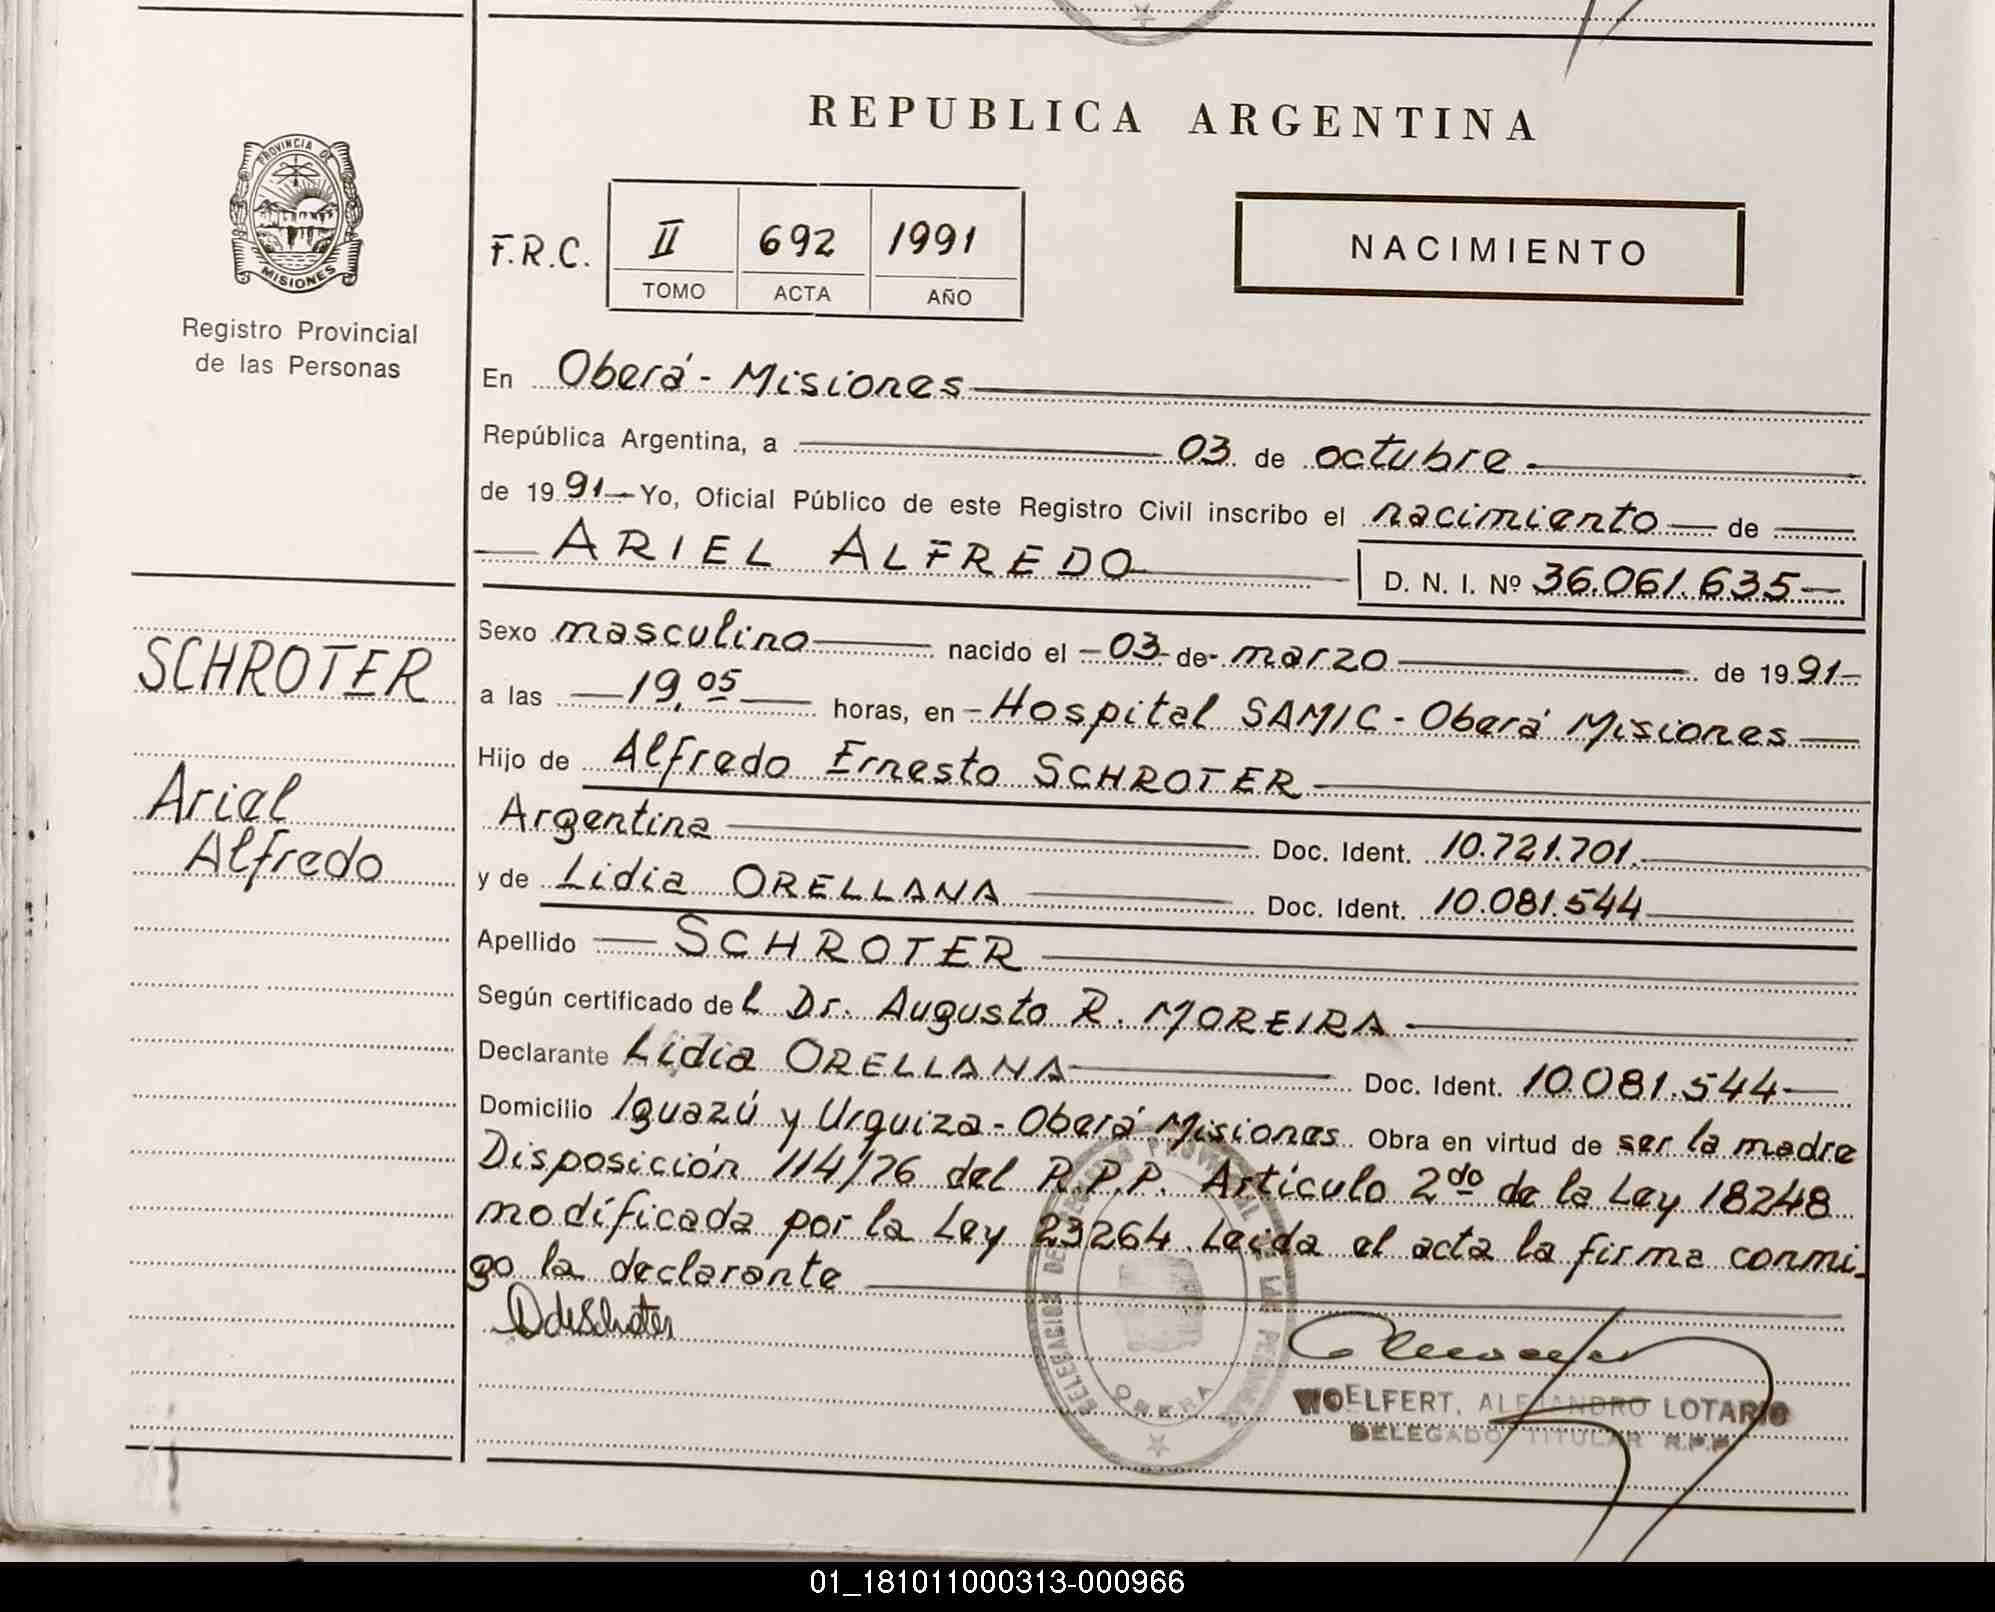 REPUBLICA ARGENTINA
PROVINCIA DE
MISIONES
Registro Provincial
de las Personas
F.R.C.
II 692 1991
TOMO ACTA AÑO
NACIMIENTO
En Oberá - Misiones
República Argentina, a 03 de octubre
de 19 91 Yo, Oficial Público de este Registro Civil inscribo el nacimiento de
ARIEL ALFREDO D. N. I. Nº 36.061.635
SCHROTER
Ariel
Alfredo
Sexo masculino nacido el 03 de marzo de 19 91
a las 19,05 horas, en Hospital SAMIC - Oberá Misiones
Hijo de Alfredo Ernesto SCHROTER
Argentina Doc. Ident. 10.721.701.
y de Lidia ORELLANA Doc. Ident. 10.081.544
Apellido SCHROTER
Según certificado del Dr. Augusto R. MOREIRA
Declarante Lidia ORELLANA Doc. Ident. 10.081.544
Domicilio Iguazú y Urquiza - Oberá Misiones Obra en virtud de ser la madre
Disposición 114/76 del R.P.P. Artículo 2do de la Ley 18248
modificada por la Ley 23264. Leida el acta la firma conmi-
go la declarante
DELEGACION DE PROVINCIAL DE LAS PERSONAS
OBERA
WOELFERT, ALEJANDRO LOTARIO
DELEGADO TITULAR R.P.P.
01_181011000313-000966